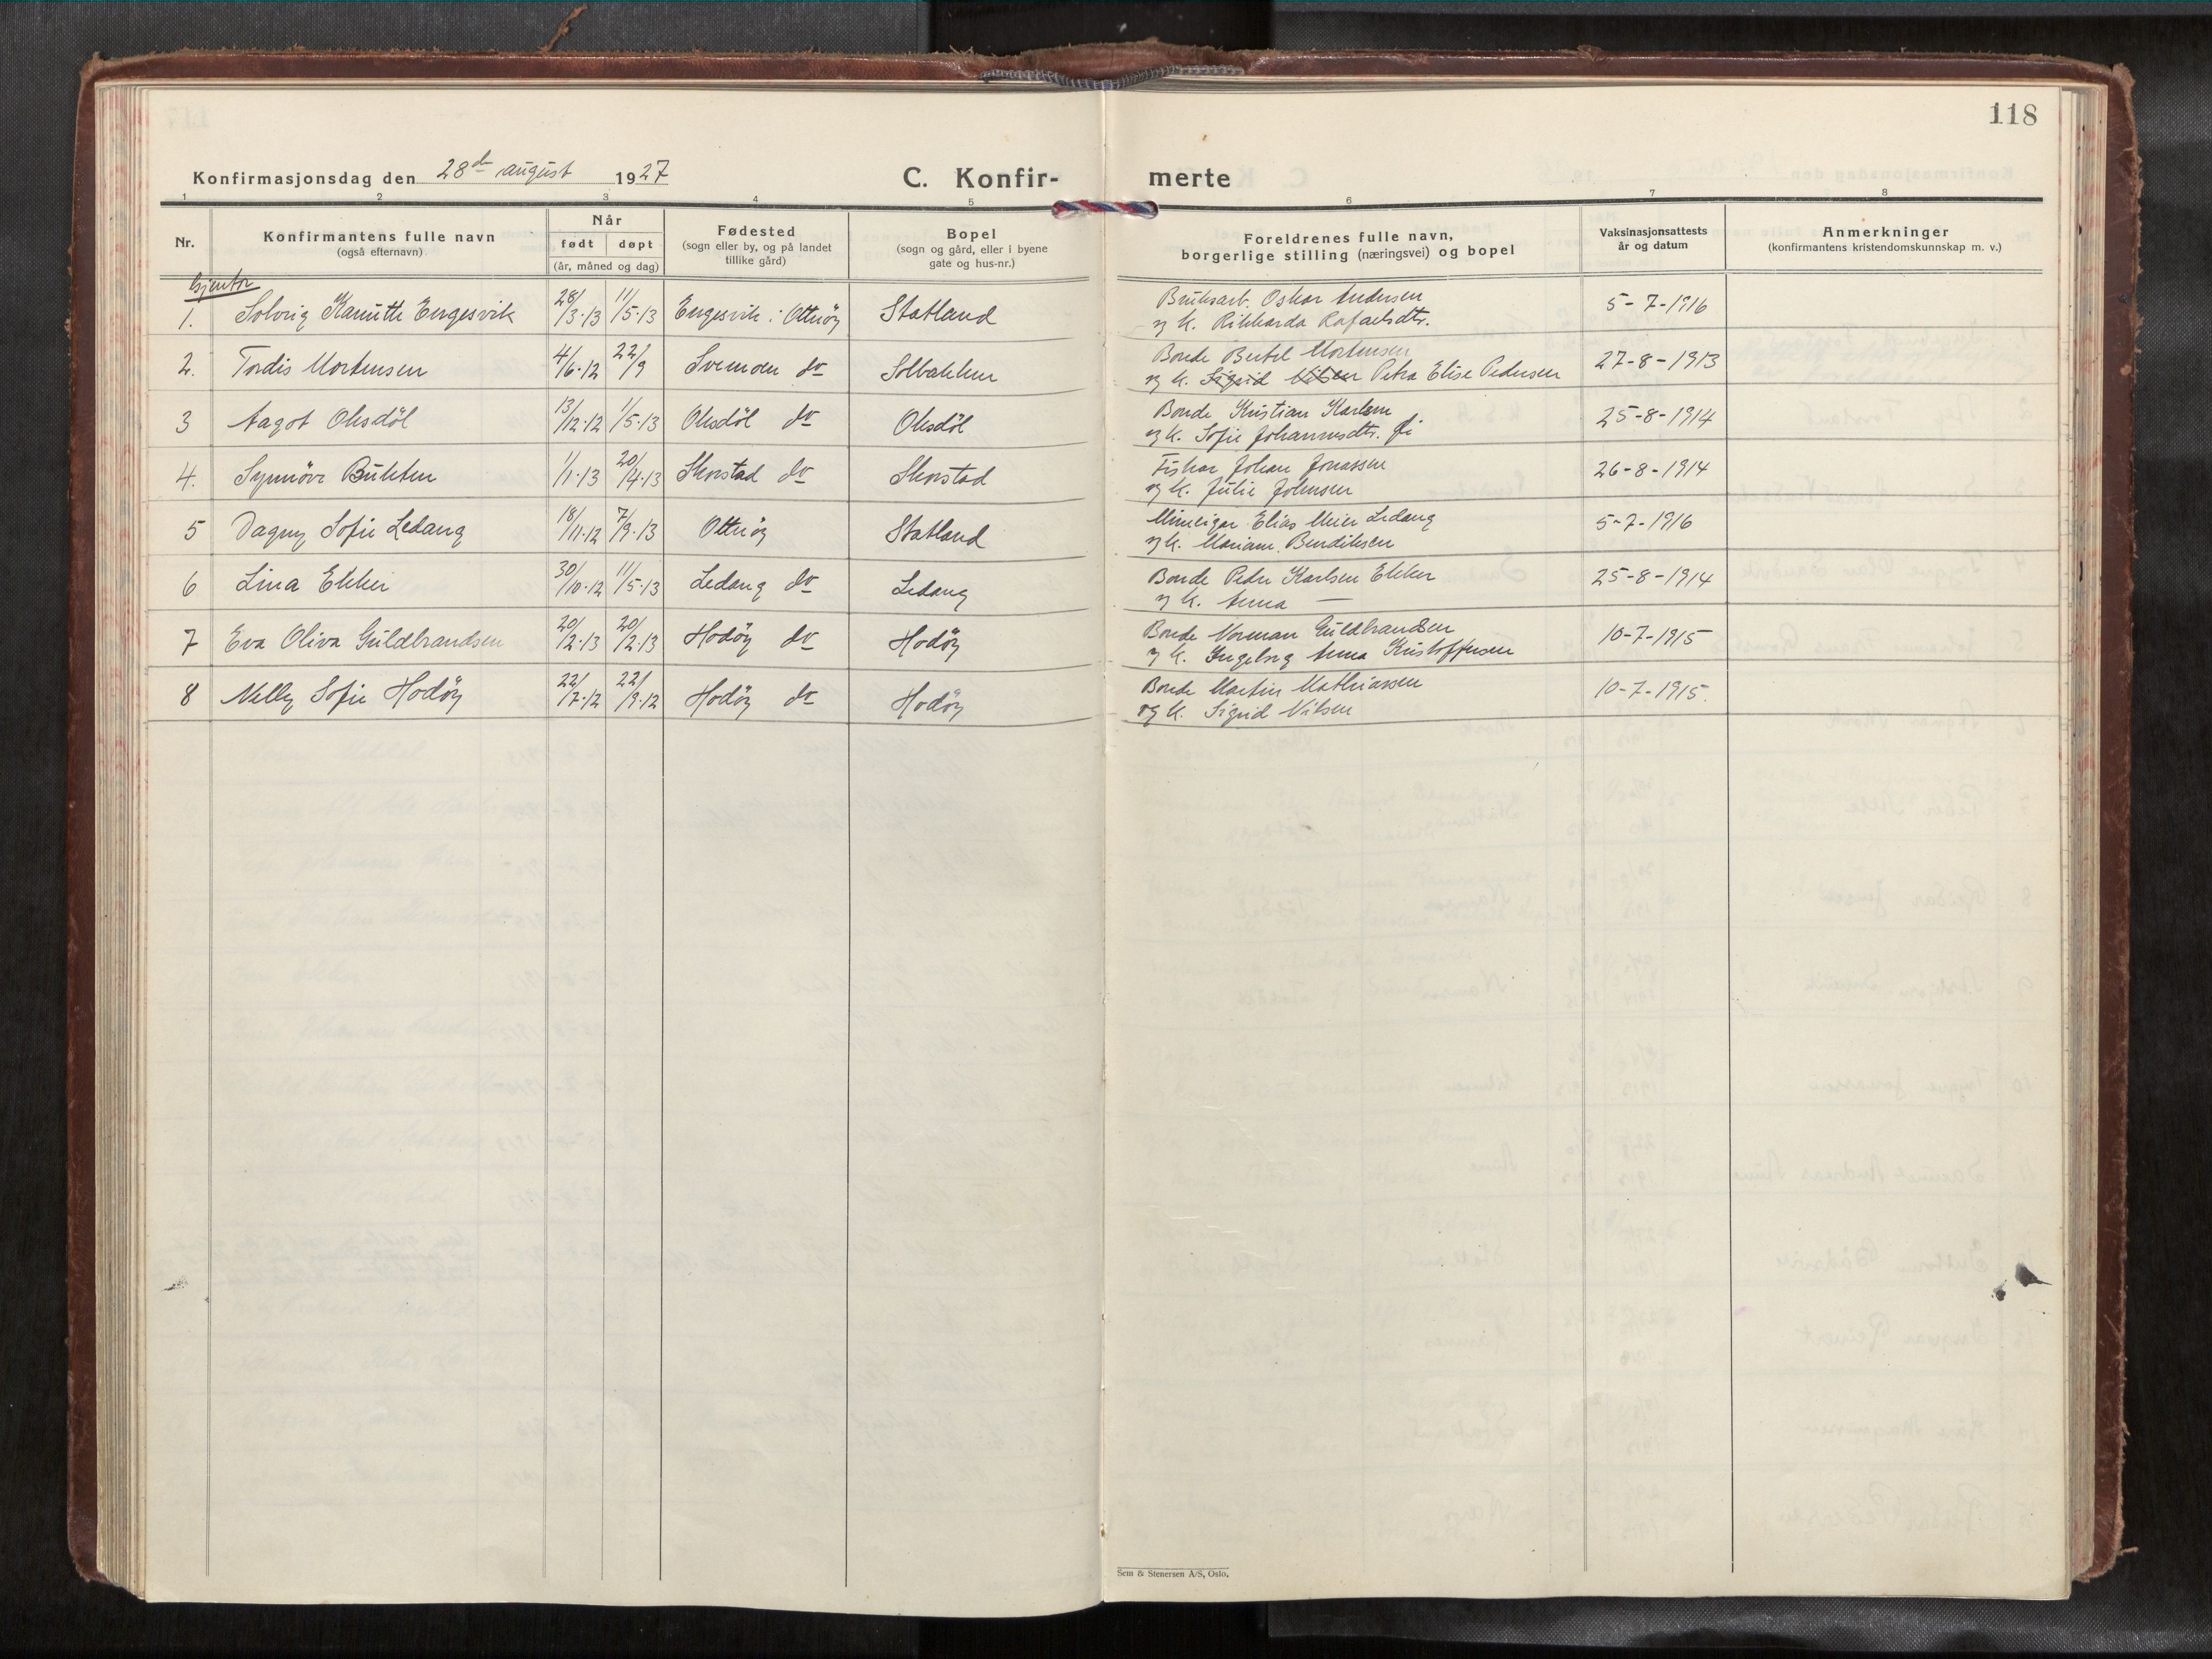 118
Konfirmasjonsdag den 28de august 1927
C. Konfir- merte
1 2 3 4 5 6 7 8
Nr.
Konfirmantens fulle navn
(også efternavn)
Når
født døpt
(år, måned og dag)
Fødested
(sogn eller by, og på landet
tillike gård)
Bopel
(sogn og gård, eller i byene
gate og hus-nr.)
Foreldrenes fulle navn,
borgerlige stilling (næringsvei) og bopel
Vaksinasjonsattests
år og datum
Anmerkninger
(konfirmantens kristendomskunnskap m. v.)
Gjenter
1. Solveig Engesvik 28/3·13 11/5·13 Engesvik i Otterøy Statland Bruksarb. Oskar Andersen 5-7-1916
og k. Rikharda Rafaelsdtr.
2. Tordis Mortensen 4/6·12 22/9 do Solbakken Bonde Bertel Mortensen 27-8-1913
og k. Sigrid Nilsen Petra Elise Pedersen
3 Aagot Olsdöl 13/12·12 1/5·13 Olsdöl do Olsdöl Bonde Kristian Karlsen 25-8-1914
og k. Sofie Johannesdtr.
4. Synnöve Bukten 1/1·13 20/4·13 Skorstad do Skorstad Fisker Johan Jonassen 26-8-1914
og k. Julie Johnsen
5 Dagny Sofie Ledang 18/11·12 7/9·13 Otteröy Statland Elias Meier Ledang 5-7-1916
og k. Mariane Bendiksen
6 Lina Ekker 30/10·12 11/5·13 Ledang do Ledang Bonde Peder Karlsen Ekker 25-8-1914
og k. Anna —
7 Eva Oliva Guldbrandsen 20/2·13 20/2·13 Hodöy do Hodöy Bonde Norman Guldbrandsen 10-7-1915
og k. Ingeborg Anna Kristoffersen
8 Nelly Sofie Hodöy 22/7·12 22/9·12 Hodöy do Hodöy Bonde Martin Mathiassen 10-7-1915.
og k. Sigrid Nilsen
Sem & Stenersen A/S, Oslo.